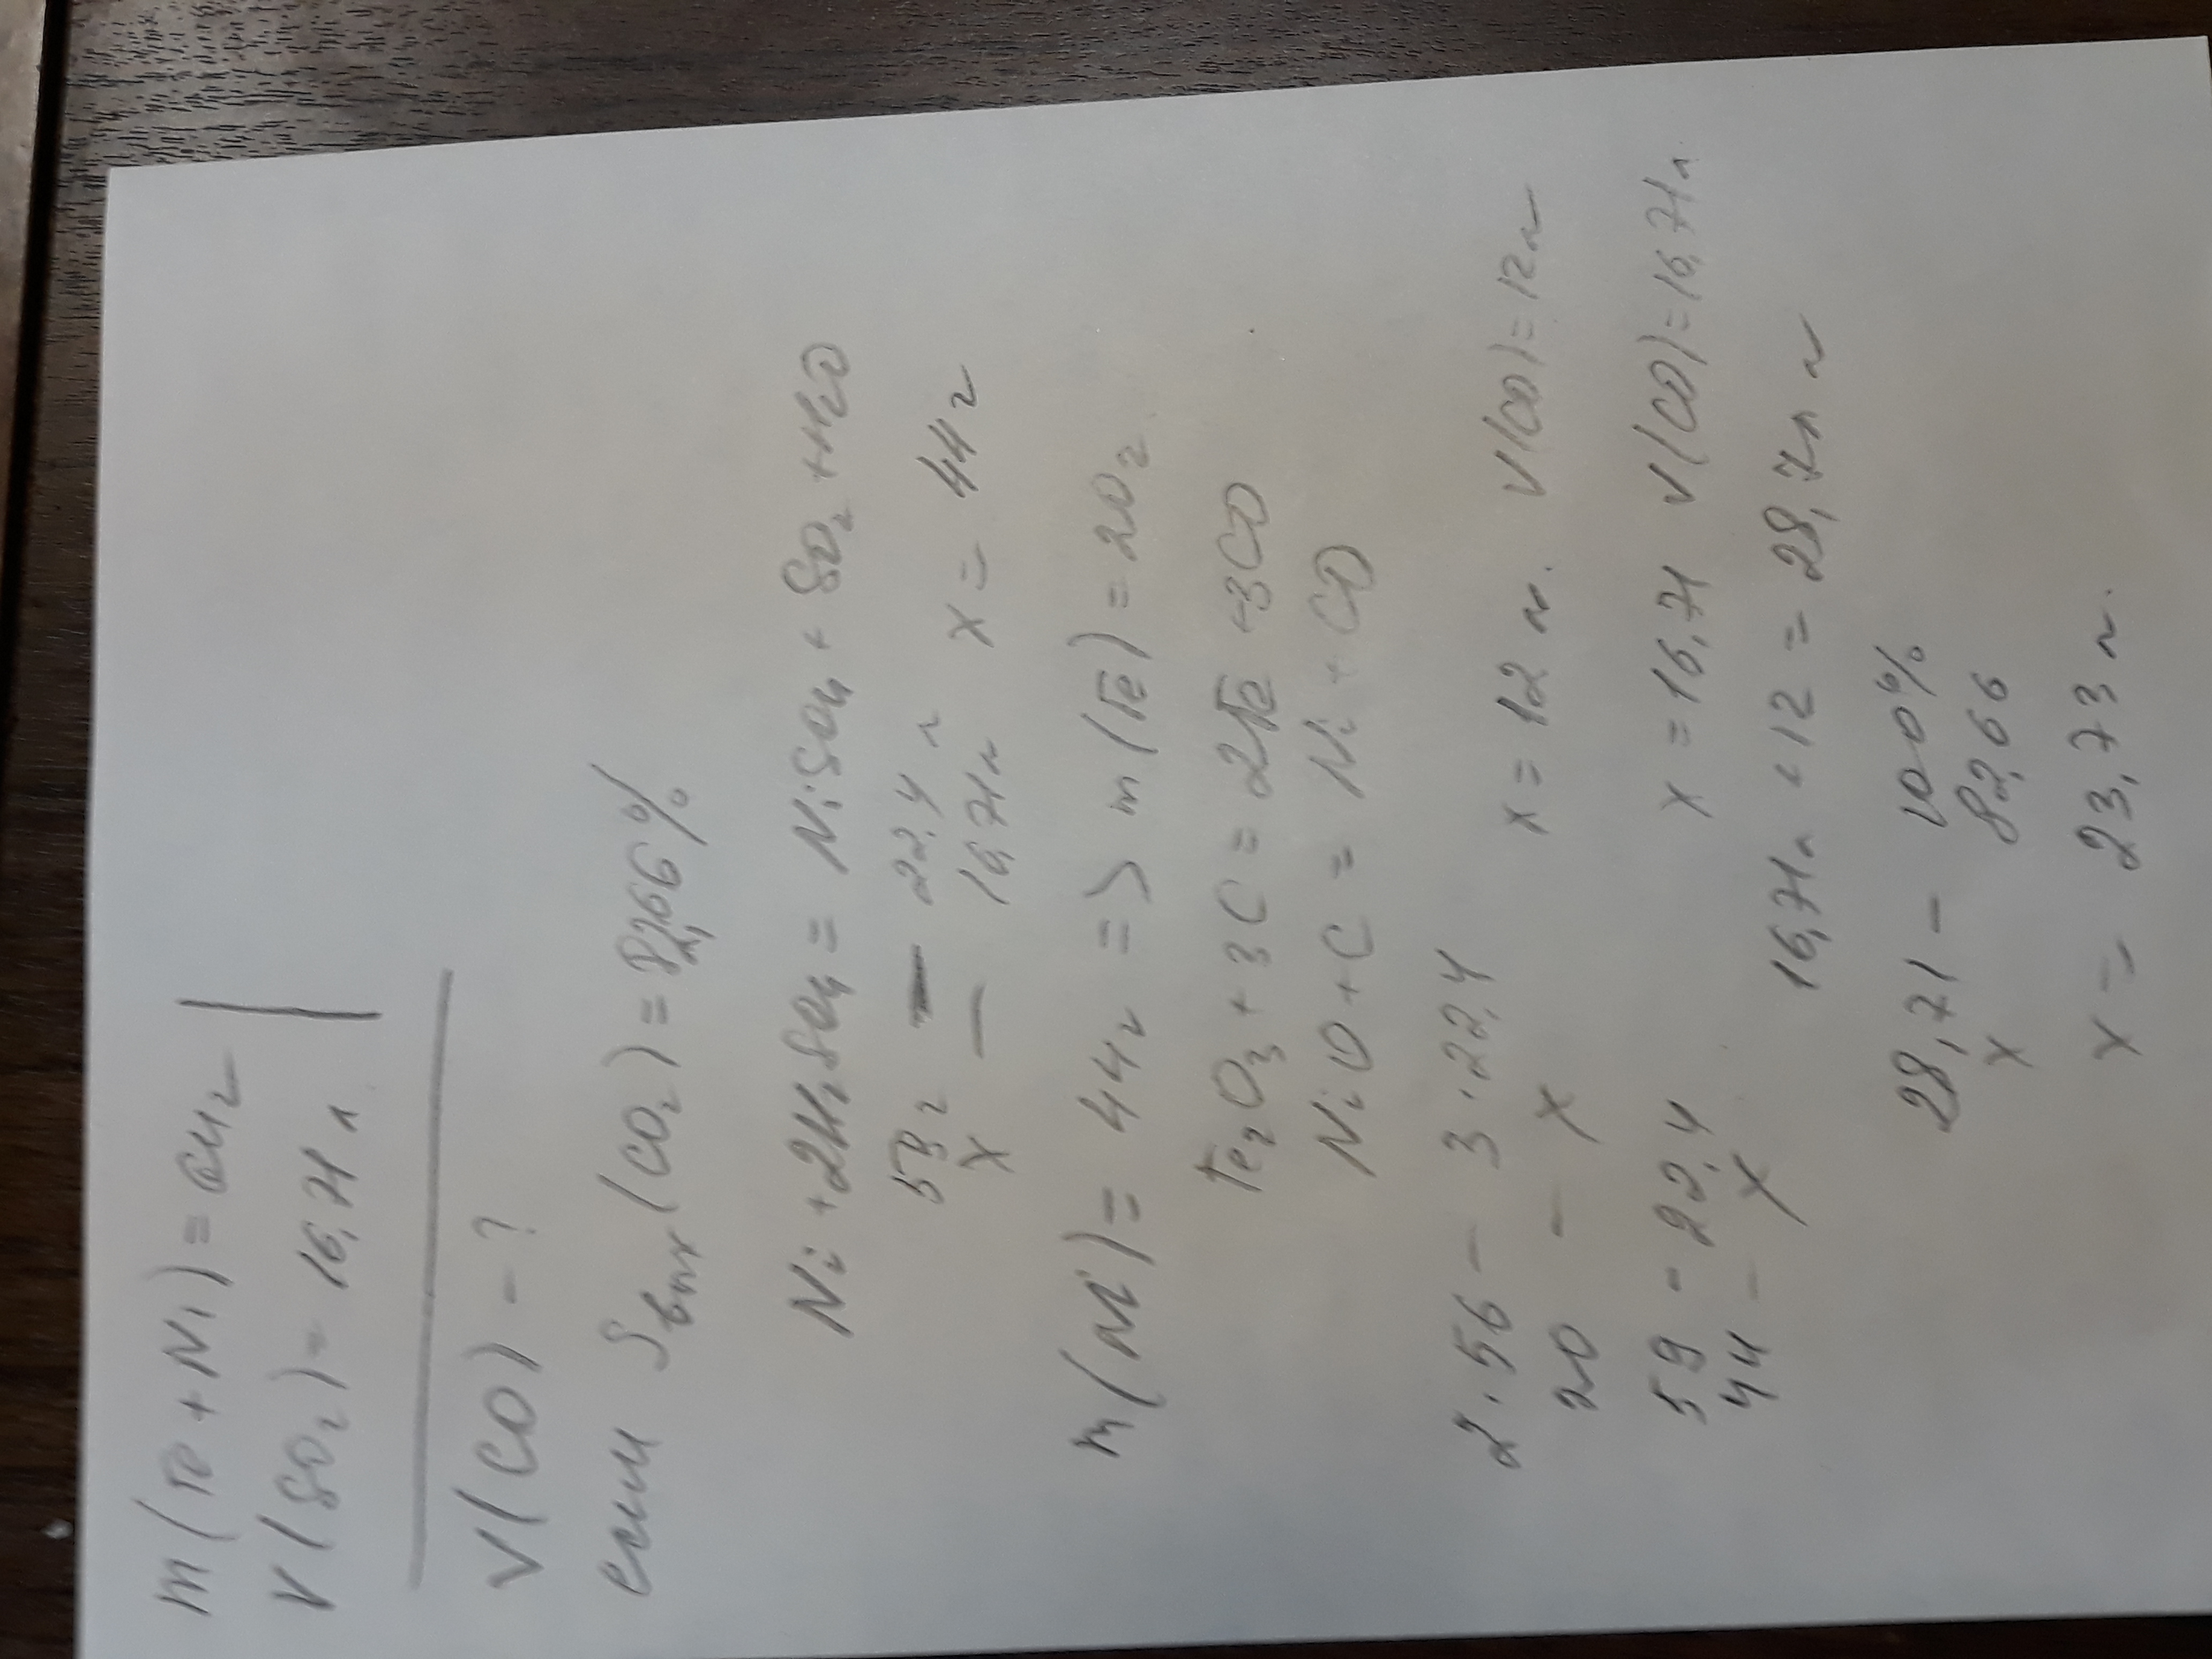 m(Fe+Ni) = 64г
V(SO₂) = 16,71 л.
V(CO) - ?
если Sвых(CO₂) = 82,66%
Ni + 2H₂SO₄ = NiSO₄ + SO₂ + H₂O
59г — 22,4 л
x — 16,71л x = 44г
m(Ni) = 44г => m(Fe) = 20г.
Fe₂O₃ + 3C = 2Fe + 3CO
NiO + C = Ni + CO
2·56 - 3·22,4
20 - x x = 12 л. V(CO) = 12л
59 - 22,4
44 - x x = 16,71 V(CO) = 16,71л.
16,71л + 12 = 28,71 л
28,71 - 100%
x 82,66
x = 23,73 л.